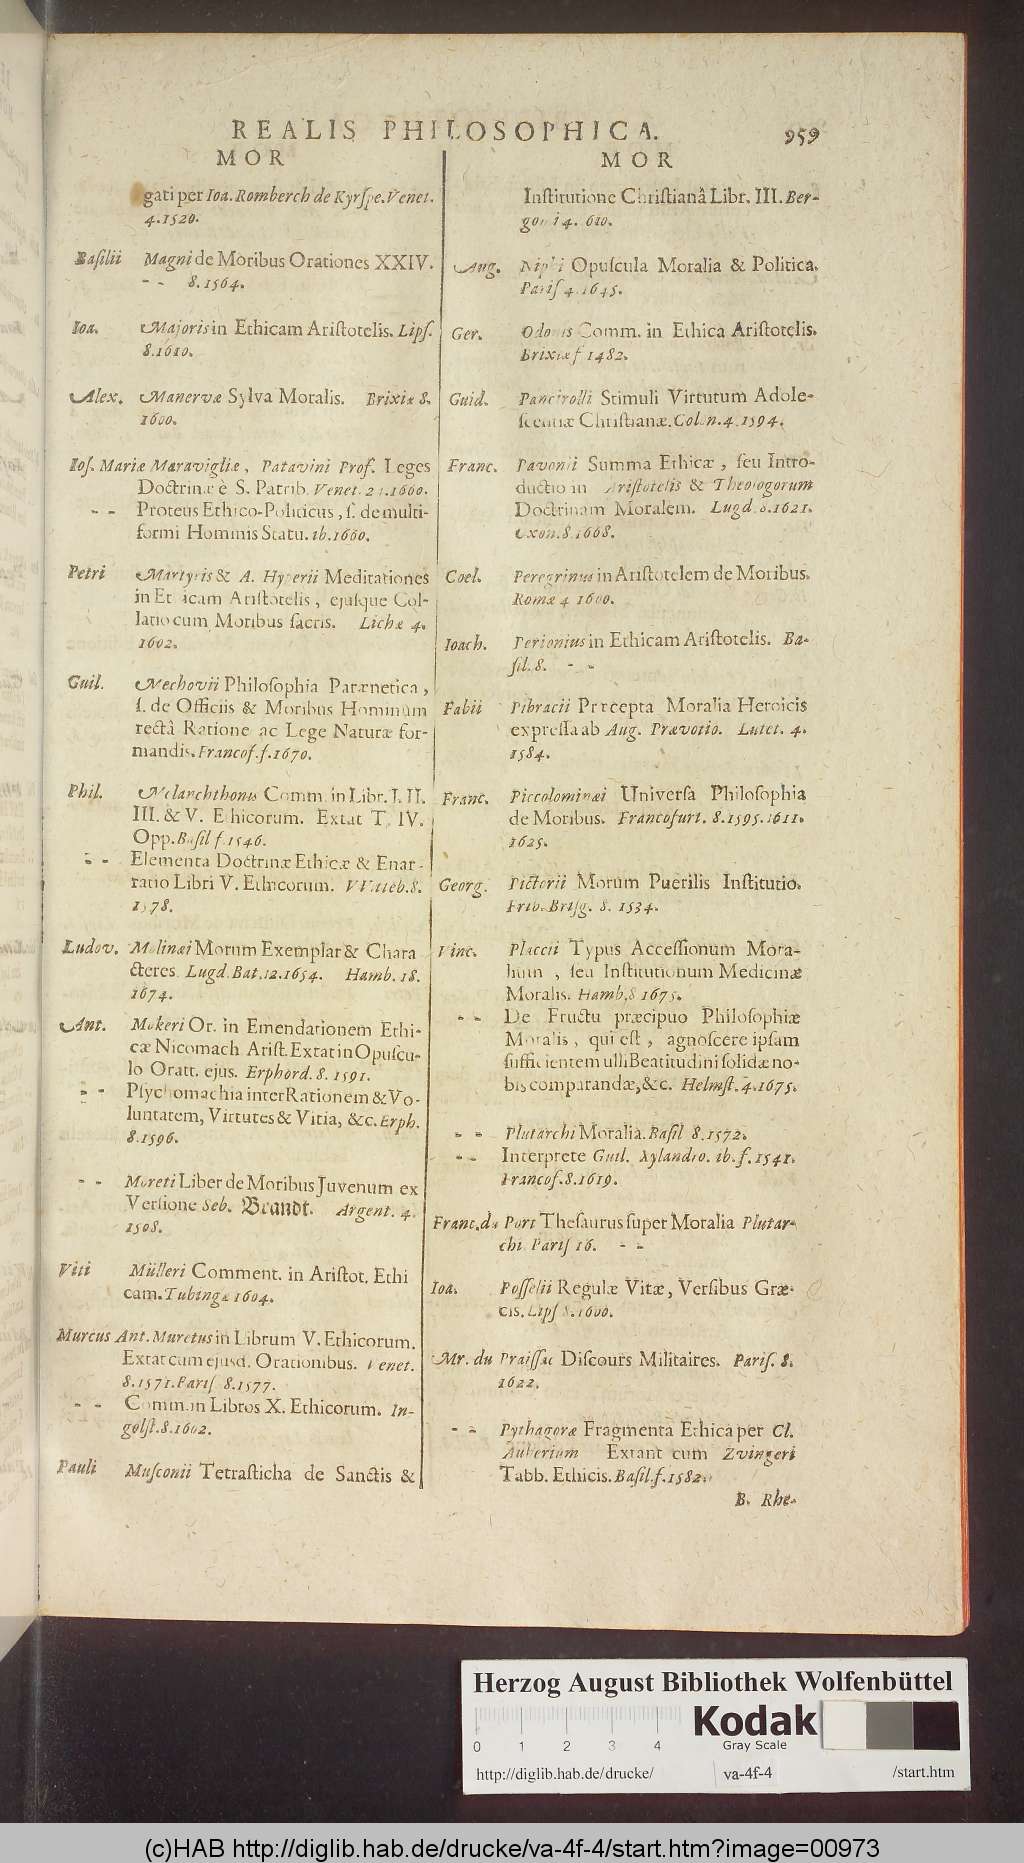 REALIS PHILOSOPHICA. 959
MOR
gati per Ioa. Romberch de Kyrſpe. Venet.
4. 1520.
Baſilii Magni de Moribus Orationes XXIV.
- - 8. 1564.
Ioa. Majoris in Ethicam Ariſtotelis. Lipſ.
8. 1610.
Alex. Manervæ Sylva Moralis. Brixiæ 8.
1600.
Ioſ. Mariæ Maravigliæ, Patavini Prof. Leges
Doctrinæ è S. Patrib. Venet. 24. 1600.
- - Proteus Ethico-Politicus, ſ. de multi-
formi Hominis Statu. ib. 1660.
Petri Martyris & A. Hyperii Meditationes
in Ethicam Ariſtotelis, ejuſque Col-
latio cum Moribus ſacris. Lichæ 4.
1602.
Guil. Mechovii Philoſophia Parænetica,
ſ. de Officiis & Moribus Hominum
rectâ Ratione ac Lege Naturæ for-
mandis. Francof. f. 1670.
Phil. Melanchthonis Comm. in Libr. I. II.
III. & V. Ethicorum. Extat T. IV.
Opp. Baſil f. 1546.
- - Elementa Doctrinæ Ethicæ & Enar-
ratio Libri V. Ethicorum. VVitteb. 8.
1578.
Ludov. Molinæi Morum Exemplar & Chara
cteres. Lugd. Bat. 12. 1654. Hamb. 18.
1674.
Ant. Mokeri Or. in Emendationem Ethi-
cæ Nicomach Ariſt. Extat in Opuſcu-
lo Oratt. ejus. Erphord. 8. 1591.
- - Pſychomachia inter Rationem & Vo-
luntatem, Virtutes & Vitia, &c. Erph.
8. 1596.
- - Moreti Liber de Moribus Juvenum ex
Verſione Seb. Brandt. Argent. 4.
1508.
Viti Mülleri Comment. in Ariſtot. Ethi
cam. Tubingæ 1604.
Murcus Ant. Muretus in Librum V. Ethicorum.
Extat cum ejusd. Orationibus. Venet.
8. 1571. Pariſ 8. 1577.
- - Comm. in Libros X. Ethicorum. In-
golſt. 8. 1602.
Pauli Muſconii Tetraſticha de Sanctis &
MOR
Inſtitutione Chriſtianâ Libr. III. Ber-
gomi 4. 610.
Aug. Niphi Opuſcula Moralia & Politica.
Pariſ 4. 1645.
Ger. Odonis Comm. in Ethica Ariſtotelis.
Brixiæ f 1482.
Guid. Pancirolli Stimuli Virtutum Adole-
ſcentiæ Chriſtianæ. Colon. 4. 1594.
Franc. Pavonii Summa Ethicæ, ſeu Intro-
ductio in Ariſtotelis & Theologorum
Doctrinam Moralem. Lugd. 8. 1621.
Oxon. 8. 1668.
Coel. Peregrinus in Ariſtotelem de Moribus.
Romæ 4 1600.
Ioach. Perionius in Ethicam Ariſtotelis. Ba-
ſil. 8. - -
Fabii Pibracii Præcepta Moralia Heroicis
expreſſa ab Aug. Prævotio. Lutet. 4.
1584.
Franc. Piccolominæi Univerſa Philoſophia
de Moribus. Francofurt. 8. 1595. 1611.
1625.
Georg. Pictorii Morum Puerilis Inſtitutio.
Frib. Briſg. 8. 1534.
Vinc. Placcii Typus Acceſſionum Mora-
lium, ſeu Inſtitutionum Medicinæ
Moralis. Hamb. 8 1675.
- - De Fructu præcipuo Philoſophiæ
Moralis, qui eſt, agnoſcere ipſam
ſufficientem ulli Beatitudini ſolidæ no-
bis comparandæ, &c. Helmſt. 4. 1675.
- - Plutarchi Moralia. Baſil 8. 1572.
- - Interprete Guil. Xylandro. ib. f. 1541.
Francof. 8. 1619.
Franc. du Port Theſaurus ſuper Moralia Plutar-
chi Pariſ 16. - -
Ioa. Poſſelii Regulæ Vitæ, Verſibus Græ-
cis. Lipſ 8. 1600.
Mr. du Praiſſac Diſcours Militaires. Pariſ. 8.
1622.
- - Pythagoræ Fragmenta Ethica per Cl.
Auberium Extant cum Zvingeri
Tabb. Ethicis. Baſil. f. 1582.
B. Rhe-
Herzog August Bibliothek Wolfenbüttel
Kodak
0 1 2 3 4 Gray Scale
http://diglib.hab.de/drucke/ va-4f-4 /start.htm
(c)HAB http://diglib.hab.de/drucke/va-4f-4/start.htm?image=00973